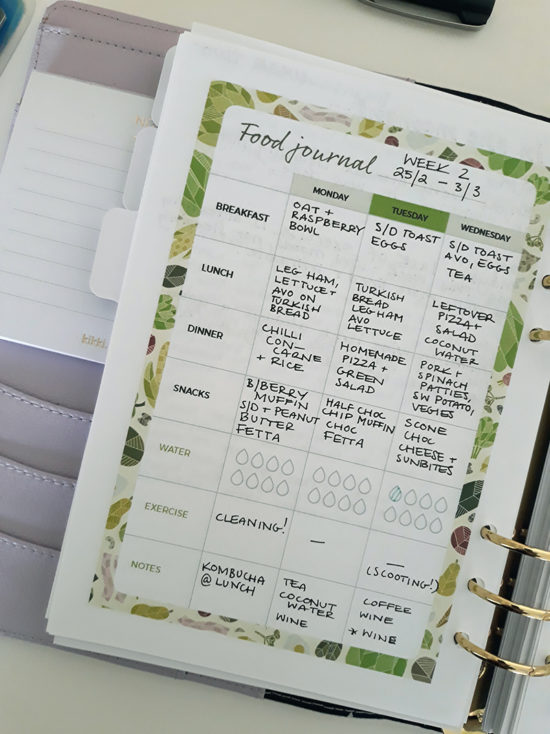 Food journal
WEEK 2
25/2 – 3/3
MONDAY
TUESDAY
WEDNESDAY
BREAKFAST
OAT +
RASPBERRY
BOWL
S/D TOAST
EGGS
S/D TOAST
AVO, EGGS
TEA
LUNCH
LEG HAM,
LETTUCE +
AVO ON
TURKISH
BREAD
TURKISH
BREAD
LEG HAM
AVO
LETTUCE
LEFTOVER
PIZZA +
SALAD
COCONUT
WATER
DINNER
CHILLI
CON–
CARNE
+ RICE
HOMEMADE
PIZZA +
GREEN
SALAD
PORK +
SPINACH
PATTIES,
SW POTATO,
VEGIES
SNACKS
B/BERRY
MUFFIN
S/D + PEANUT
BUTTER
FETTA
HALF CHOC
CHIP MUFFIN
CHOC
FETTA
SCONE
CHOC
CHEESE +
SUNBITES
WATER
EXERCISE
CLEANING!
—
—
(SCOOTING!)
NOTES
KOMBUCHA
@ LUNCH
TEA
COCONUT
WATER
WINE
COFFEE
WINE
* WINE
kikki